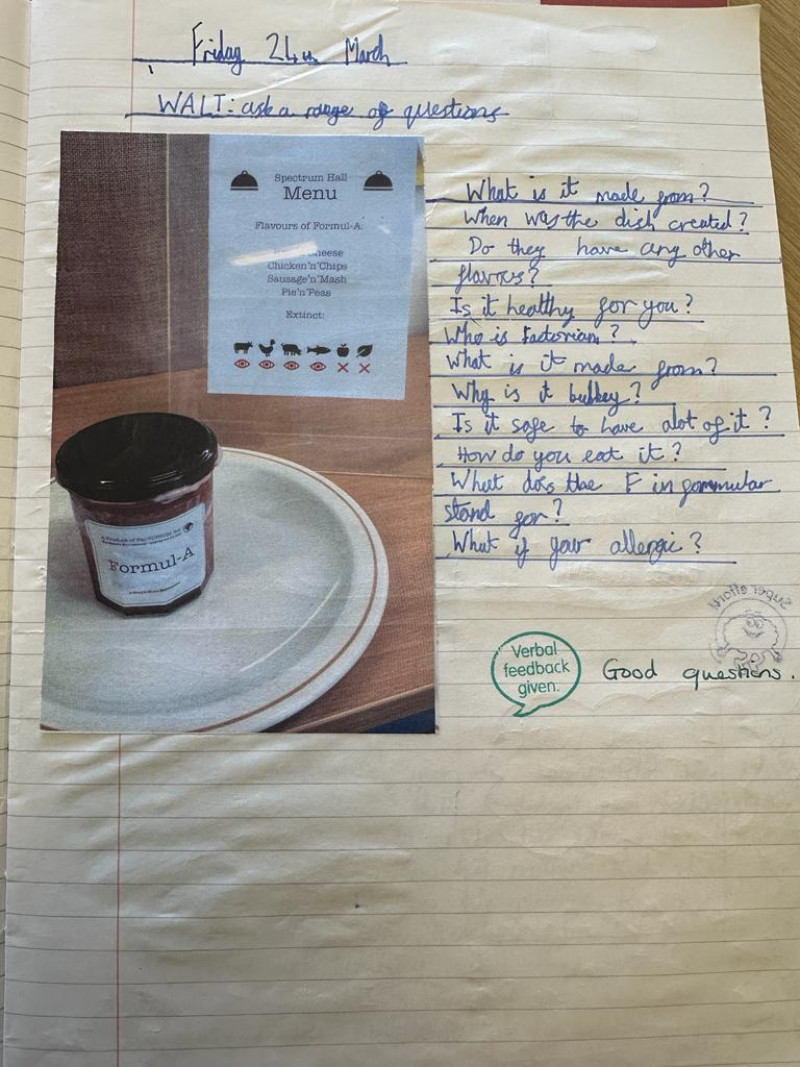 Friday 24th March
WALT: ask a range of questions
Spectrum Hall
Menu
Flavours of Formul-A:
heese
Chicken'n'Chips
Sausage'n'Mash
Pie'n'Peas
Extinct:
Formul-A
What is it made from?
When was the dish created?
Do they have any other
flavours?
Is it healthy for you?
Who is Factorian?
What is it made from?
Why is it
Is it safe to have alot of it?
How do you eat it?
What does the F in formular
stand for?
What if your allergic?
Super effort
Verbal
feedback
given.
Good questions.